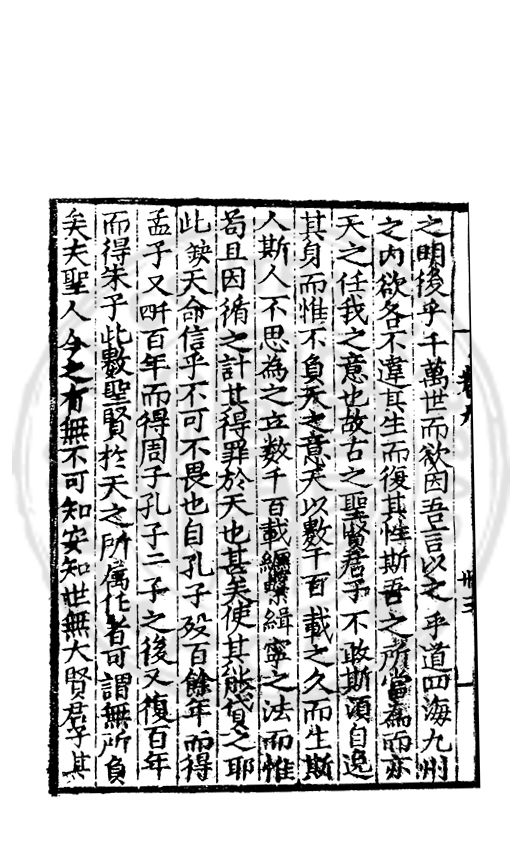 之明後乎千萬世而欲因吾言以之乎道四海九州
之内欲各不違其生而復其性斯吾之所當為而亦
天之任我之意也故古之聖賢君子不敢斯須自逸
其身而惟不負天之意夫以數千百載之久而生斯
人斯人不思為之立數千百載纏緜緝寧之法而惟
苟且因循之計其得罪於天也甚矣使其能貸之耶
此蓋天命信乎不可不畏也自孔子殁百餘年而得
孟子又千百年而得周子孔子二子之後又復百年
而得朱子此數聖賢於天之所属任者可謂無所負
矣夫聖人今之有無不可知安知世無大賢君子其
卷九
卌三